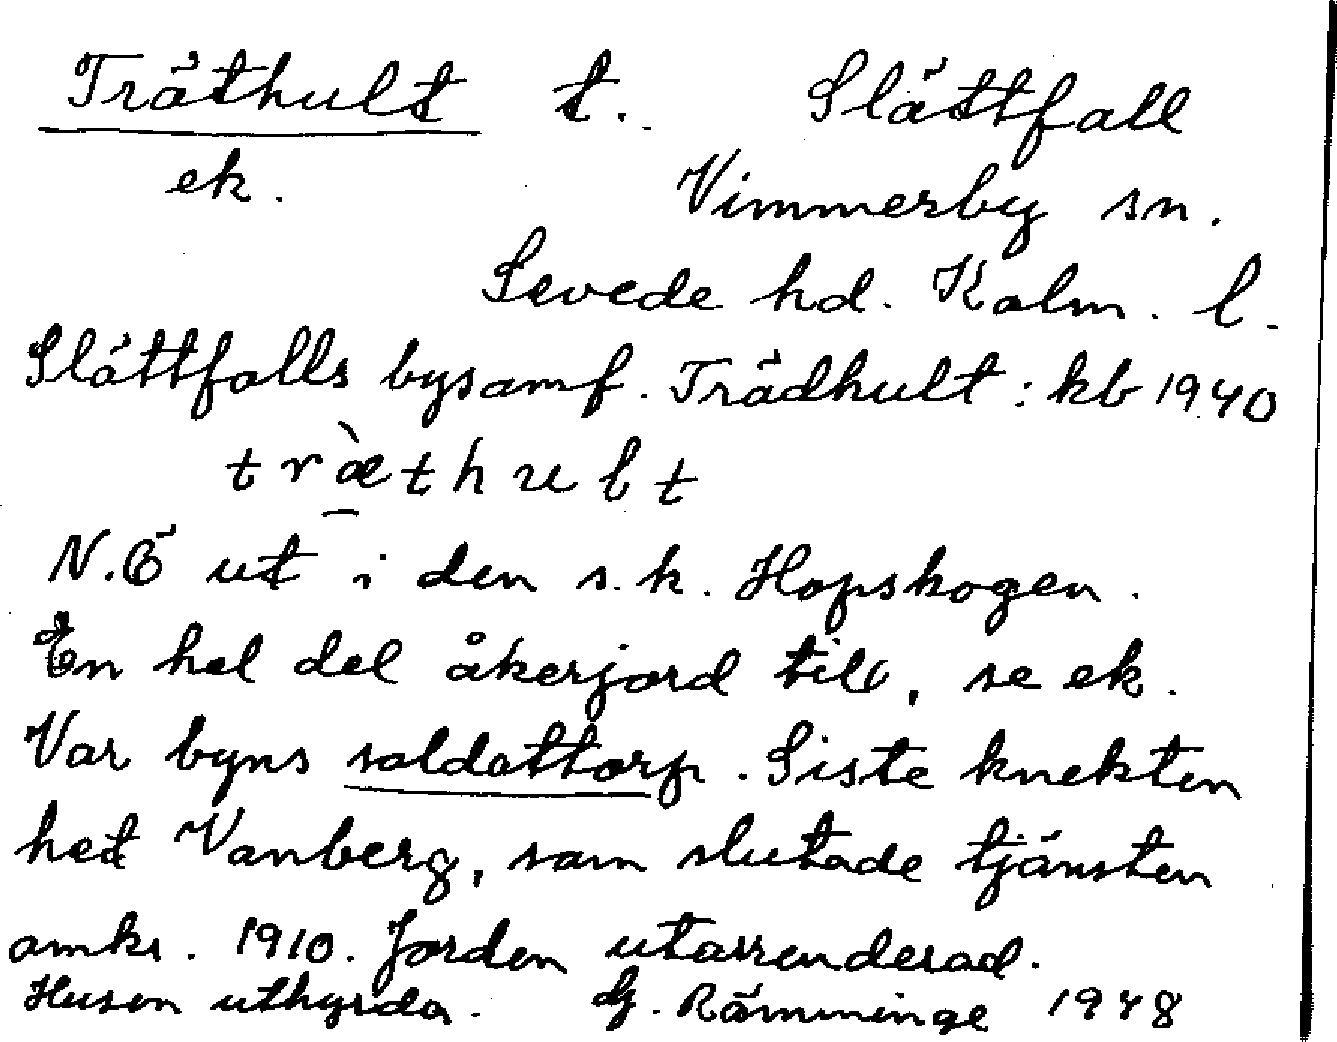 Träthult t. Slättfall
ek. Vimmerby sn.
Sevede hd. Kalm. l.
Slättfalls bysamf. Trädhult: kb 1940
træ̀thult
N.Ö ut i den s.k. Hopskogen.
En hel del åkerjord till, se ek.
Var byns soldattorp. Siste knekten
het Vanberg, som slutade tjänsten
omkr. 1910. Jorden utarrenderad.
Husen uthyrda. Rämminge 1948